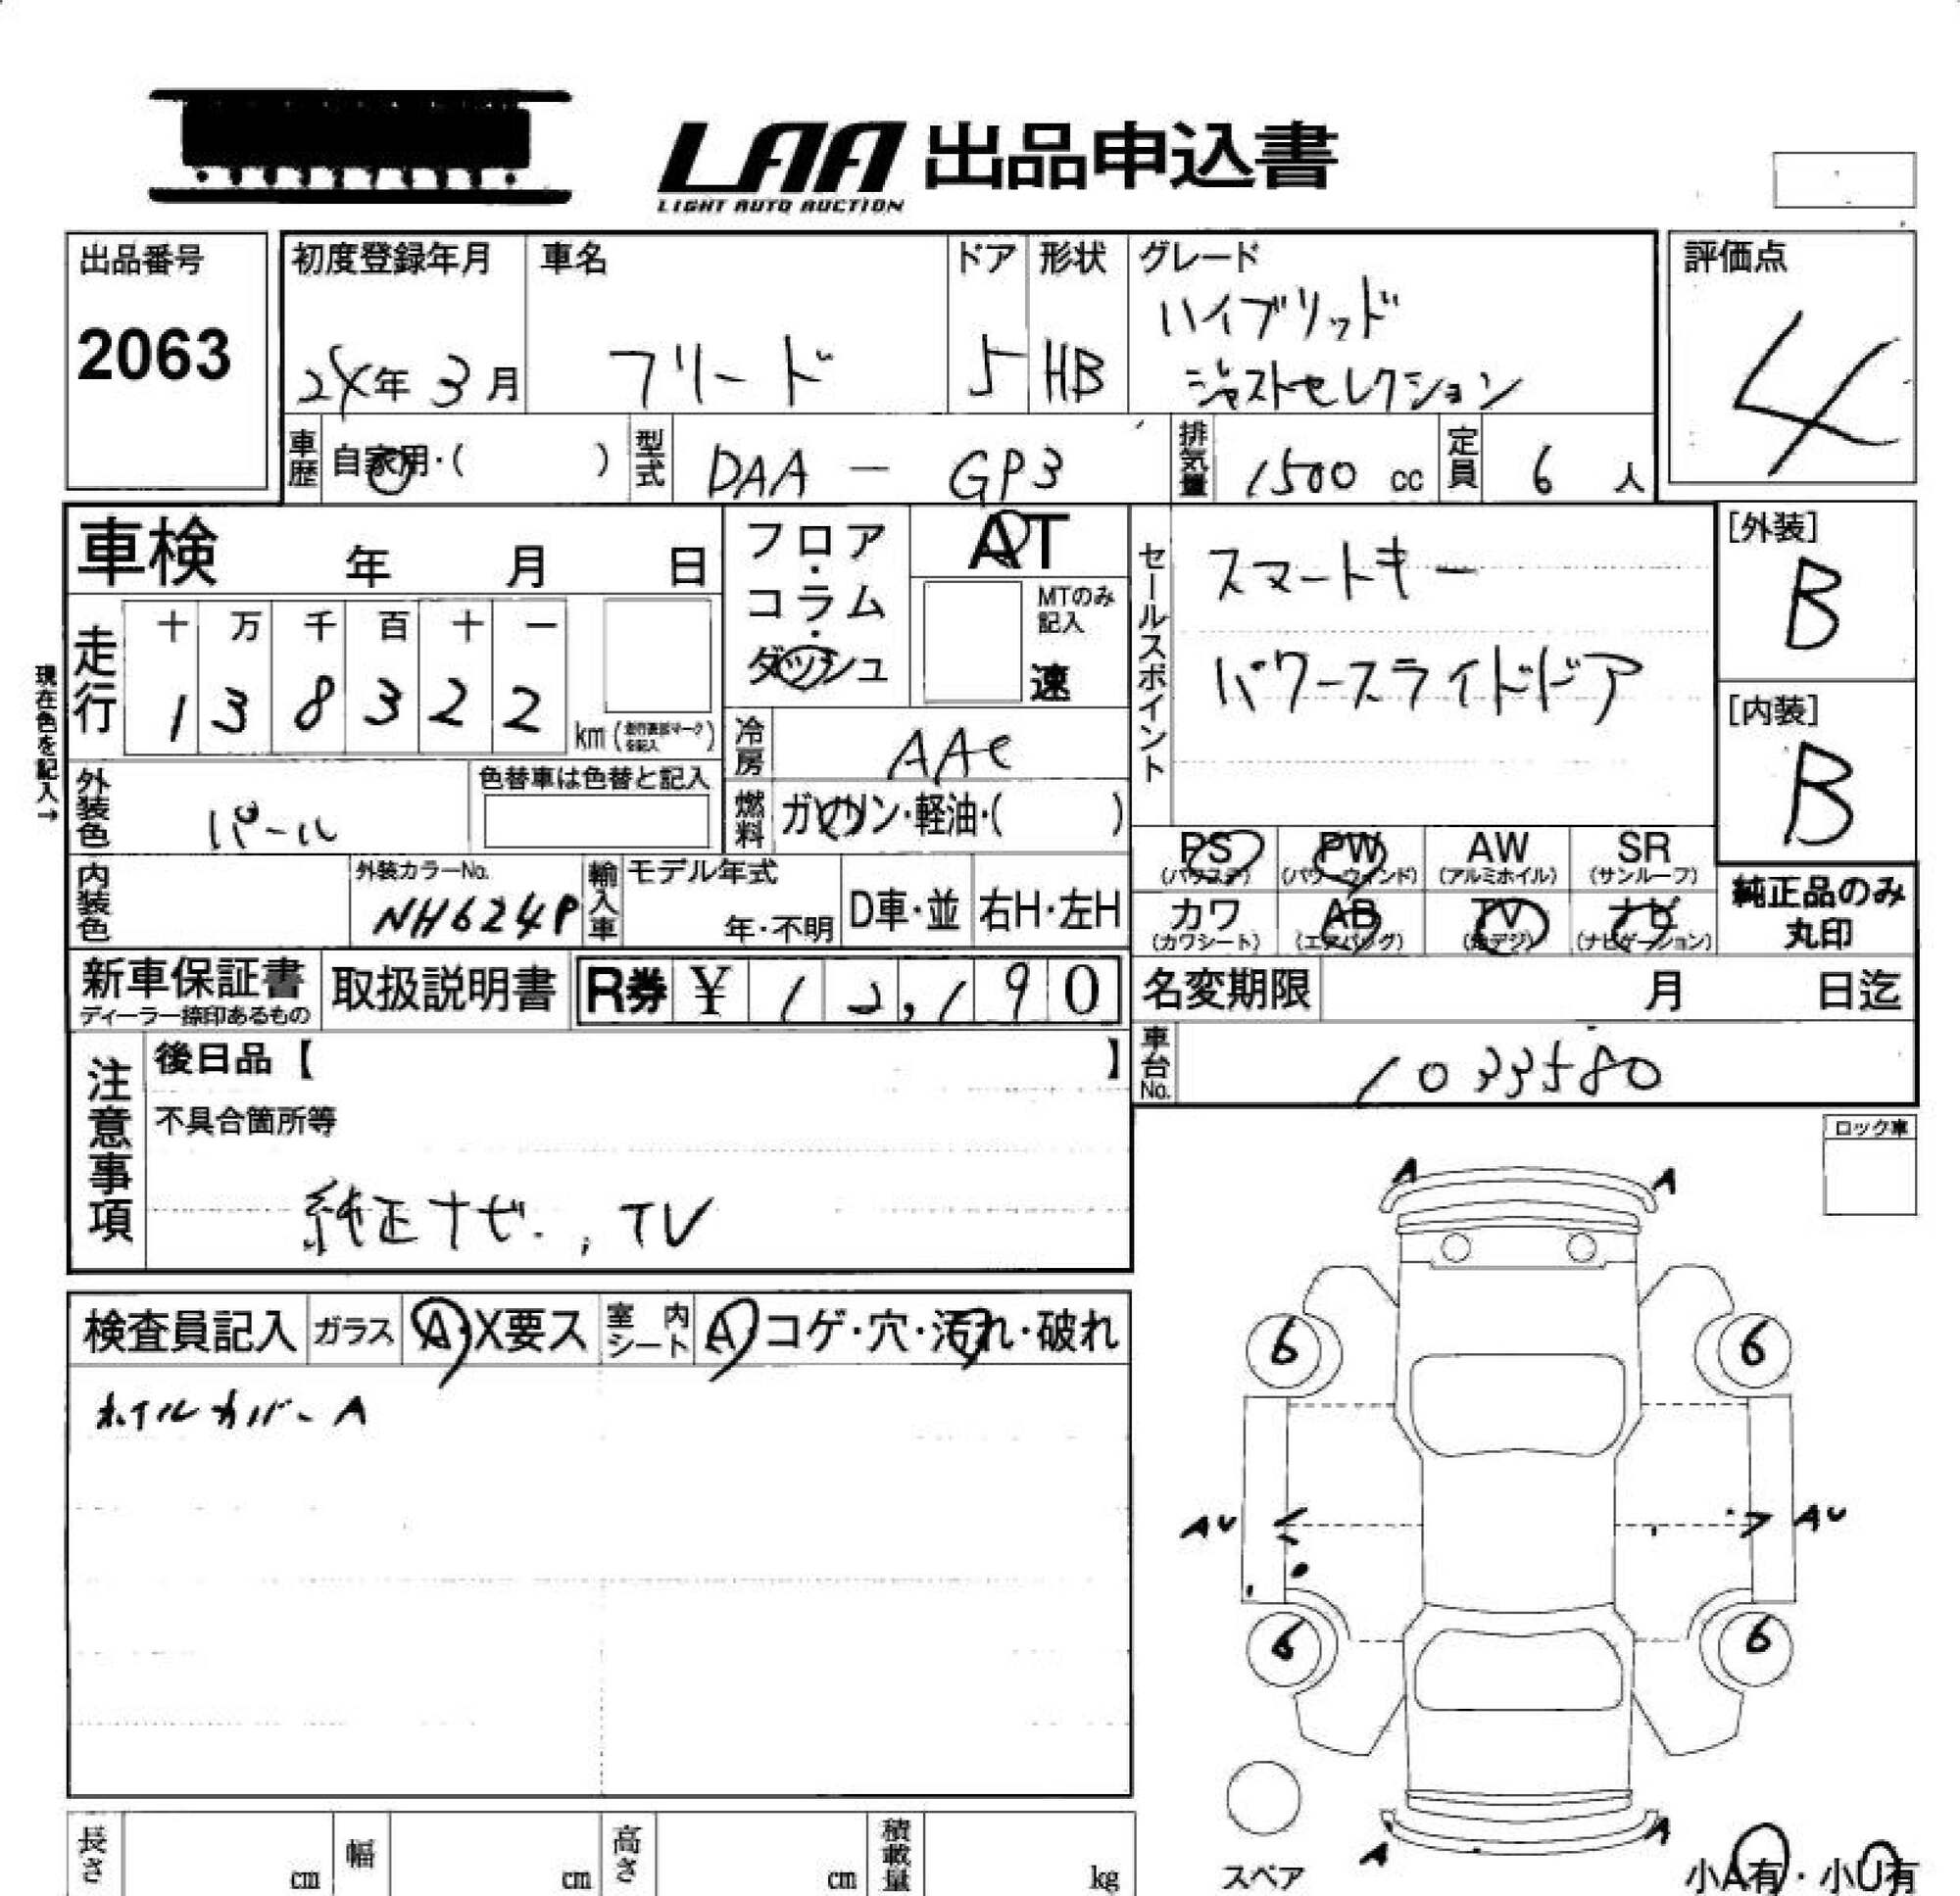 LAA 出品申込書
LIGHT AUTO AUCTION
出品番号
2063
初度登録年月
24年 3月
車名
フリード
ドア
5
形状
HB
グレード
ハイブリッド
ジャストセレクション
評価点
4
車歴
自家用・( )
型式
DAA - GP3
排気量
1500 cc
定員
6 人
車検 年 月 日
走行
十 万 千 百 十 一
1 3 8 3 2 2
km
現在色を記入→
外装色
パール
色替車は色替と記入
内装色
外装カラーNo.
NH624P
フロア・コラム・ダッシュ
AT
MTのみ記入
速
冷房
AAC
燃料
ガソリン・軽油・( )
輸入車
モデル年式
年・不明
D車・並
右H・左H
セールスポイント
スマートキー
パワースライドドア
[外装]
B
[内装]
B
PS
(パワステ)
PW
(パワーウィンド)
AW
(アルミホイル)
SR
(サンルーフ)
カワ
(カワシート)
AB
(エアバッグ)
TV
(地デジ)
ナビ
(ナビゲーション)
純正品のみ
丸印
新車保証書
ディーラー捺印あるもの
取扱説明書
R券 ¥ 1 2,1 9 0
名変期限 月 日迄
車台No.
1033580
注意事項
後日品【 】
不具合箇所等
純正ナビ., TV
ロック車
検査員記入
ガラス
A・X要ス
室内シート
A コゲ・穴・汚れ・破れ
ホイルカバーA
A A
6 6
AU AU
6 6
A A
スペア
小A有・小U有
長さ cm
幅 cm
高さ cm
積載量 kg